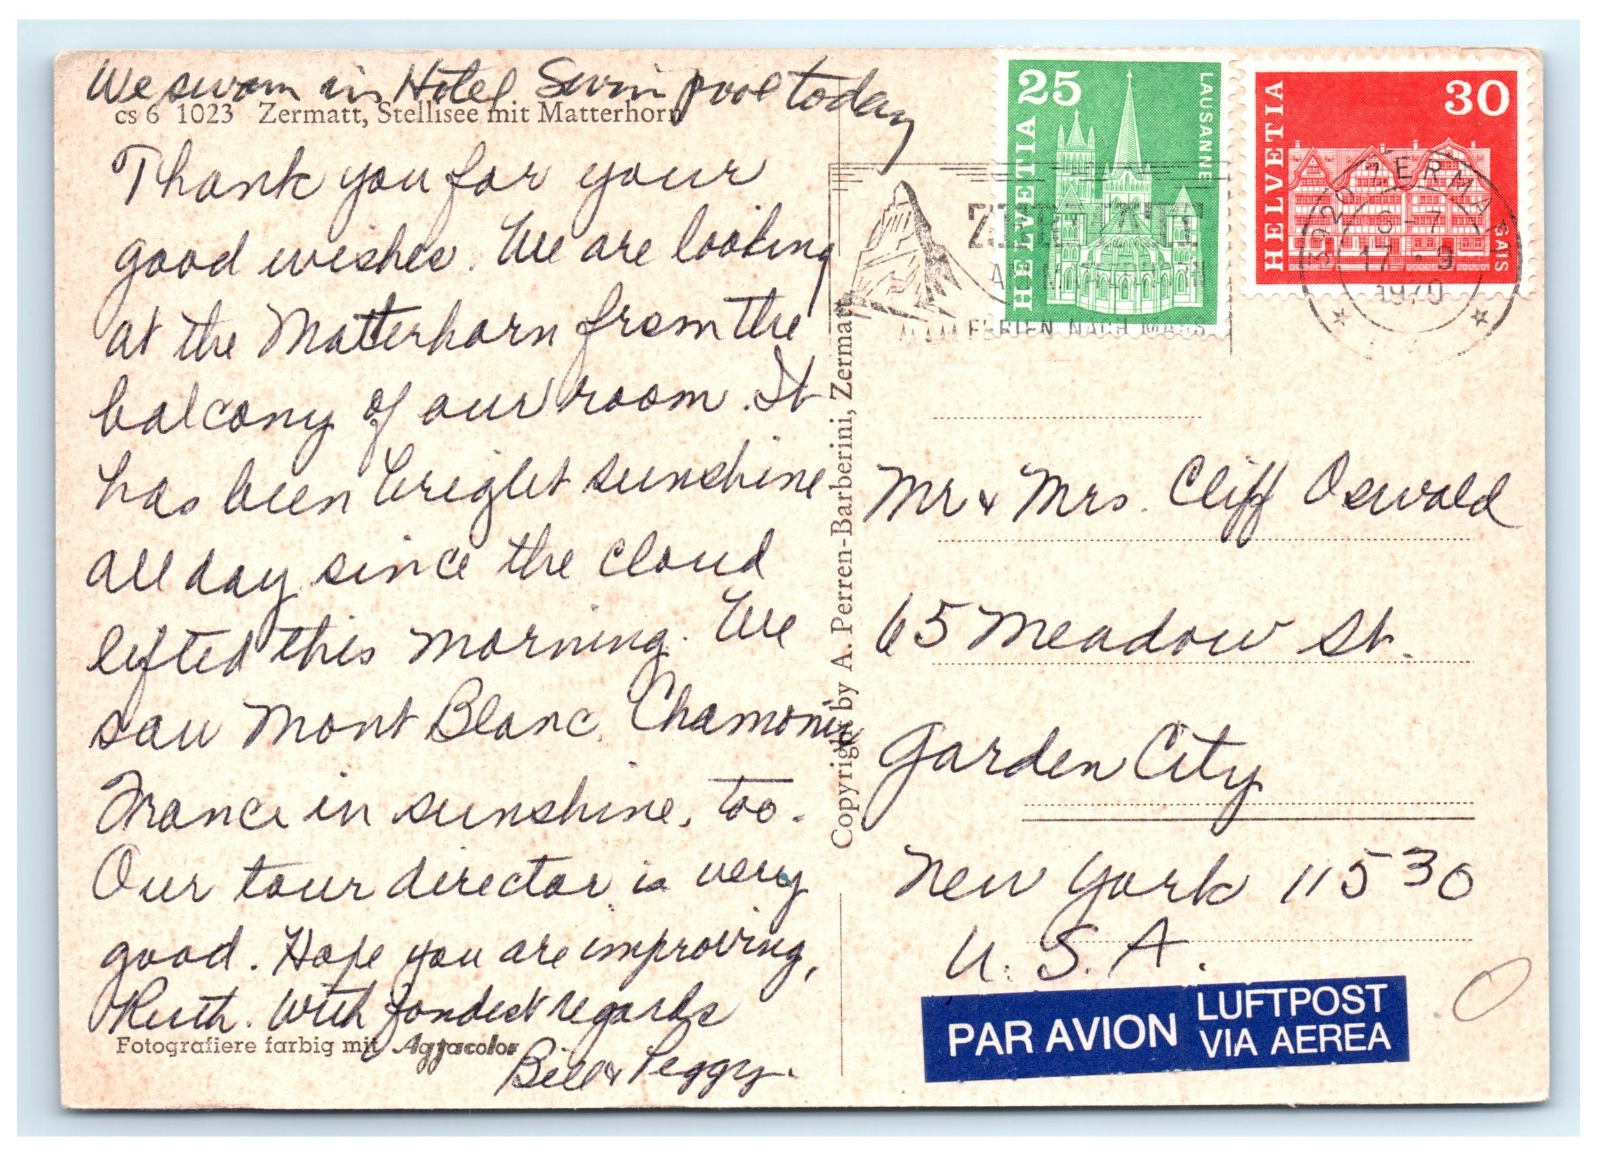 We swam in Hotel Swim pool today
cs 6 1023 Zermatt, Stellisee mit Matterhorn
Thank you for your
good wishes. We are looking
at the Matterhorn from the
balcony of our room. It
has been bright sunshine
all day since the cloud
lifted this morning. We
saw Mont Blanc, Chamonix
France in sunshine, too.
Our tour director is very
good. Hope you are improving,
Ruth. With fondest regards
Bill & Peggy.
Fotografiere farbig mit Agfacolor
Copyright by A. Perren-Barberini, Zermatt
25
HELVETIA
LAUSANNE
30
HELVETIA
GAIS
ZERMATT
FERIEN NACH MASS
3920 ZERMATT
6-7
17.9
1970
Mr & Mrs. Cliff Oswald
65 Meadow St.
Garden City
New York 11530
U.S.A.
PAR AVION
LUFTPOST
VIA AEREA